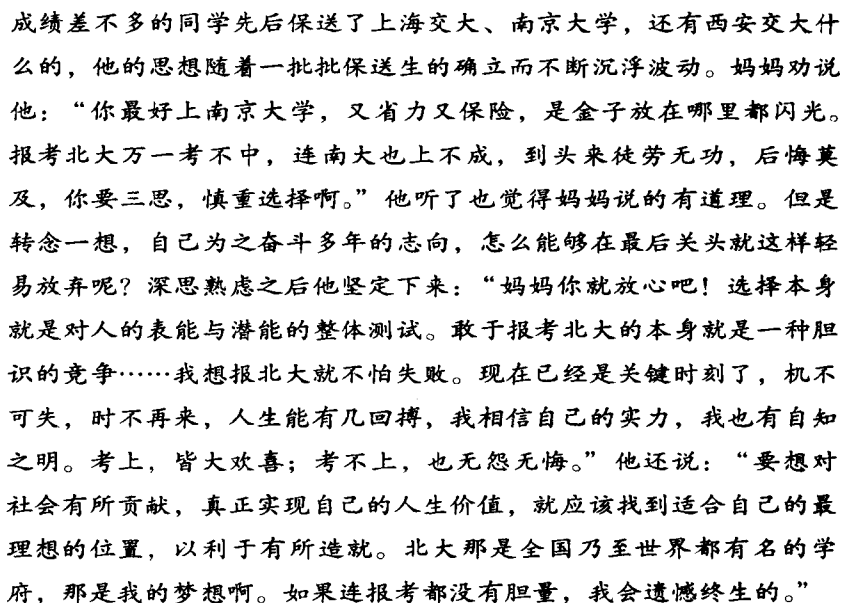 成绩差不多的同学先后保送了上海交大、南京大学，还有西安交大什
么的，他的思想随着一批批保送生的确立而不断沉浮波动。妈妈劝说
他：“你最好上南京大学，又省力又保险，是金子放在哪里都闪光。
报考北大万一考不中，连南大也上不成，到头来徒劳无功，后悔莫
及，你要三思，慎重选择啊。”他听了也觉得妈妈说的有道理。但是
转念一想，自己为之奋斗多年的志向，怎么能够在最后关头就这样轻
易放弃呢？深思熟虑之后他坚定下来：“妈妈你就放心吧！选择本身
就是对人的表能与潜能的整体测试。敢于报考北大的本身就是一种胆
识的竞争……我想报北大就不怕失败。现在已经是关键时刻了，机不
可失，时不再来，人生能有几回搏，我相信自己的实力，我也有自知
之明。考上，皆大欢喜；考不上，也无怨无悔。”他还说：“要想对
社会有所贡献，真正实现自己的人生价值，就应该找到适合自己的最
理想的位置，以利于有所造就。北大那是全国乃至世界都有名的学
府，那是我的梦想啊。如果连报考都没有胆量，我会遗憾终生的。”